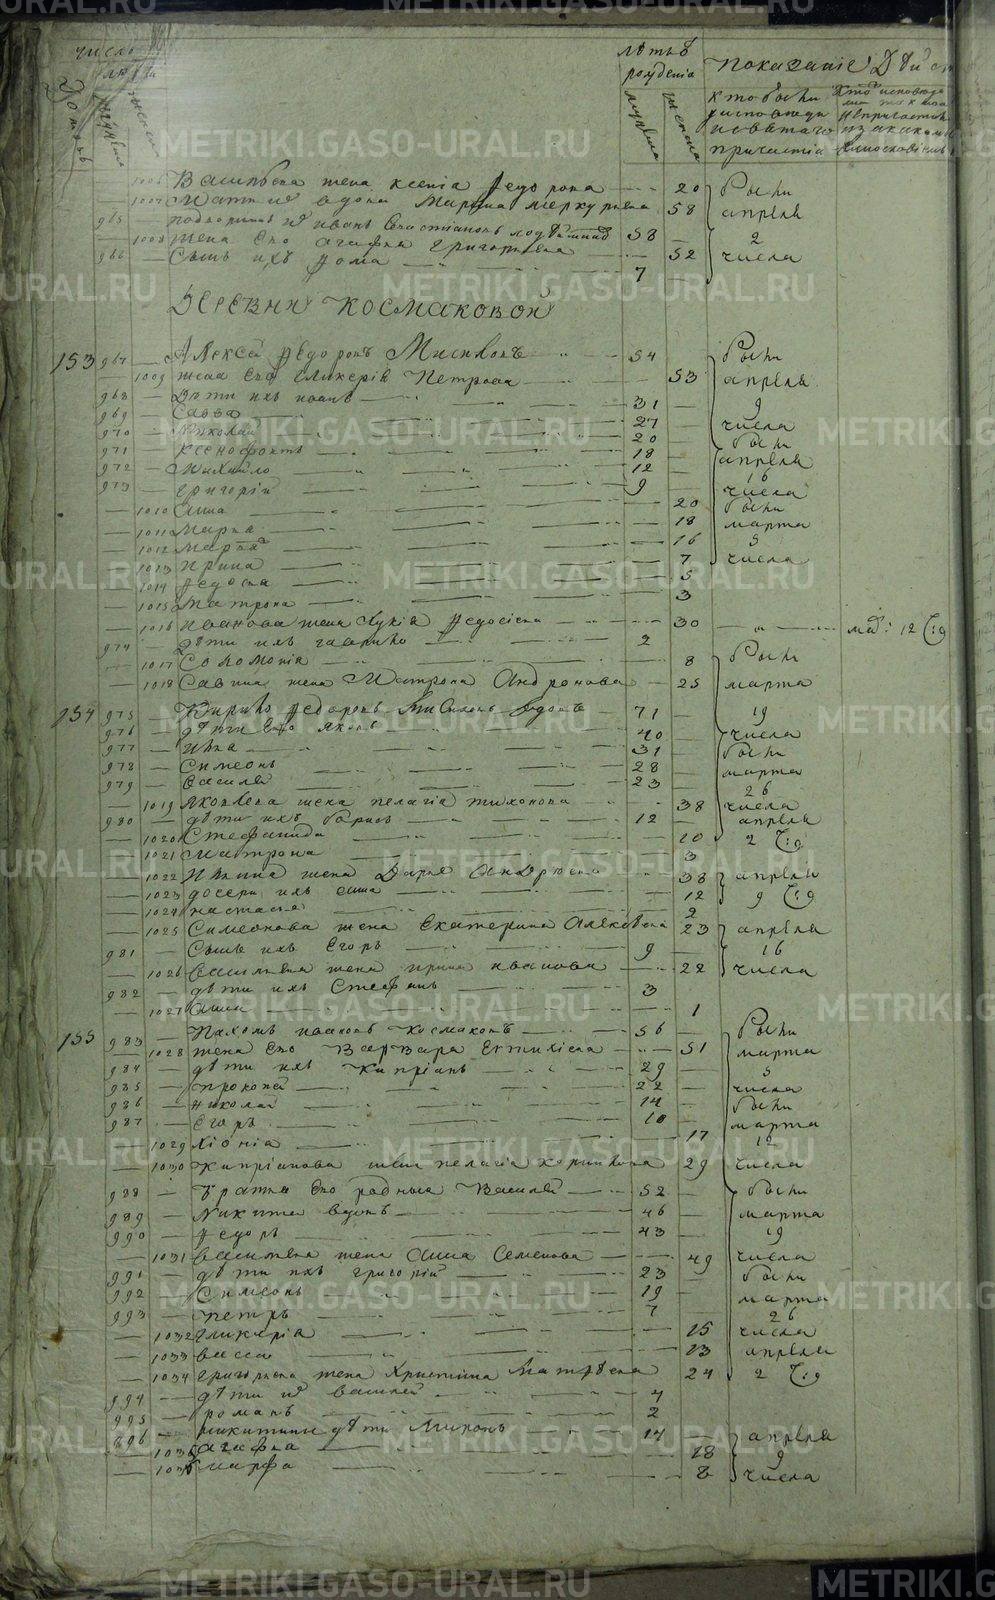 число
людей
Домовъ
мужска
женска
лѣтъ ѿ рожденія
мужска
женска
Показаніе Дѣйст
кто были у исповѣди и святаго причастія
Кто исповѣда
1006 Васильева жена Ксенія Федорова 20 были
1007 Мати их вдова Марина Меркурьева 58 апреля
965 Иванъ Севастіановъ 58 2
1008 жена его Агафья Григорьева 52 числа
966 Сынъ ихъ Фома 7
Деревни Космаковой
153 967 Алексей Федоровъ 54 были
1009 жена его Гликерія Петрова 53 апреля
968 Дѣти ихъ Иванъ 31 9
969 Савва 27 числа
970 Николай 20 были
971 Ксенофонтъ 18 апреля
972 Михайло 12 16
973 Григорій 9 числа
1010 Анна 20 были
1011 Марѳа 18 марта
1012 Марья 16 5
1013 Ирина 7 числа
1014 Федосья 5
1015 Матрона 3
1016 Иванова жена Лукія Федосѣева 30 мар: 12 Ч:9
974 дѣти ихъ Гаврило 2
1017 Соломонія 8 были
1018 Савина жена Матрона Андронова 25 марта
154 975 Кирило Федоровъ вдовъ 71 19
976 дѣти его Яковъ 40 числа
977 31 были
978 Симеонъ 28 марта
979 Василей 23 26
1019 Яковлева жена Пелагія Тихонова 38 числа
980 дѣти ихъ Борисъ 12 апреля
1020 Стефанида 10 2 Ч:9
1021 Матрона 3
1022 жена Дарья Андреева 38 апреля
1023 дочери ихъ Анна 12 9 Ч:9
1024 Настасья 2
1025 Симеонова жена Екатерина 23 апреля
981 Сынъ ихъ Егоръ 9 16
1026 Васильева жена Ирина Иванова 22 числа
982 дѣти ихъ Стефанъ 3
1027 Анна 1
155 983 Пахомъ Ивановъ Космаковъ 56 были
1028 жена его Варвара Евтихіева 51 марта
984 дѣти ихъ Кипріанъ 29 5
985 Прокопей 22 числа
986 Николай 14 были
987 Егоръ 10 марта
1029 Хіонія 17 12
1030 Кипріанова жена Пелагія 29 числа
988 Братья его родныя Василей 52 были
989 Никита вдовъ 46 марта
990 Федоръ 43 19
1031 Васильева жена Анна Семенова 49 числа
991 дѣти ихъ Григорій 23 были
992 Симеонъ 19 марта
993 Петръ 7 26
1032 Гликерія 15 числа
1033 Васса 13 апреля
1034 Григорьева жена Христина Матвѣева 24 2 Ч:9
994 дѣти их Василей 4
995 Романъ 2
996 Никитины дѣти Миронъ 14 апреля
1035 Агафья 18 9
1036 Марфа 8 числа
METRIKI.GASO-URAL.RU